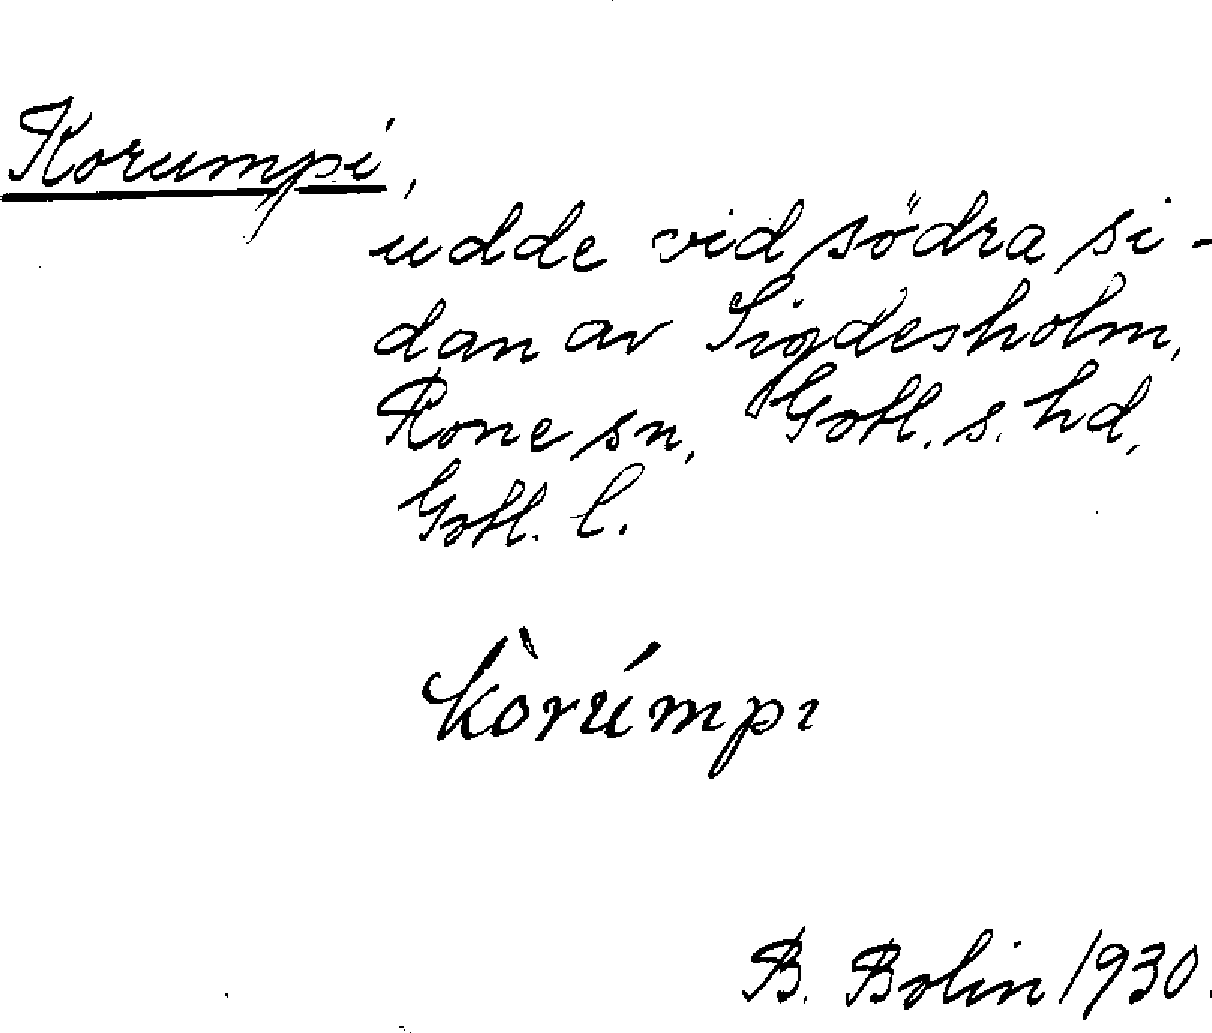 Korumpi,
udde vid södra si-
dan av Sigdesholm,
Rone sn, Gotl. s. hd,
Gotl. l.
kòrúmpı
B. Bolin 1930.